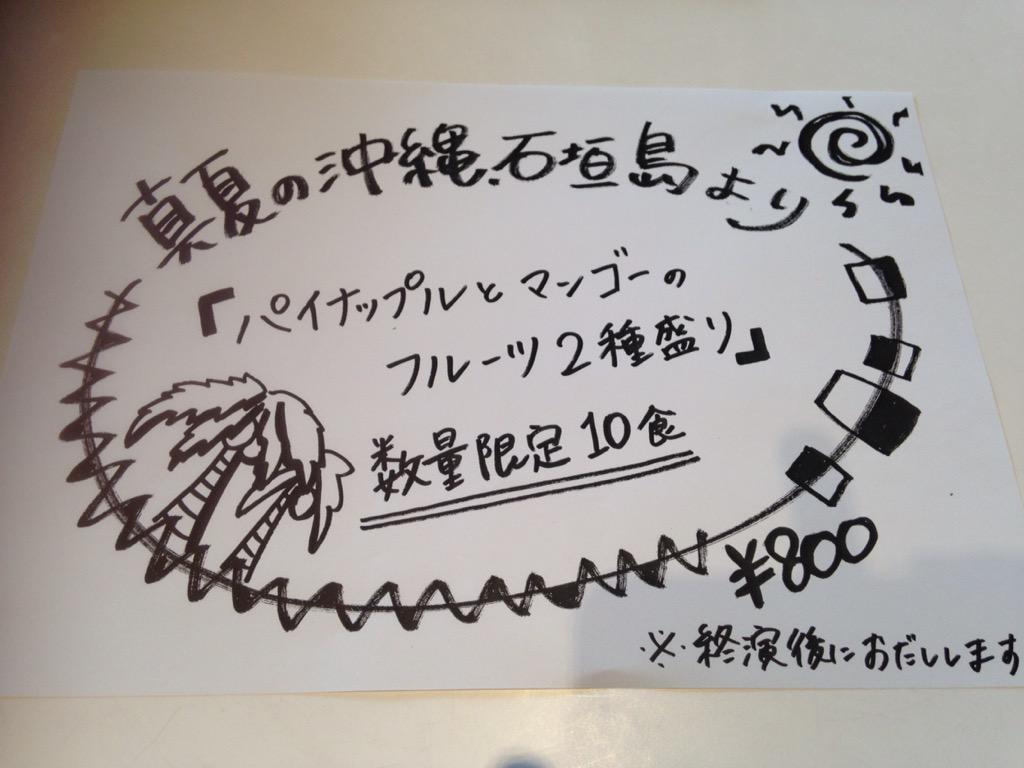 真夏の沖縄、石垣島より
『パイナップルとマンゴーの
フルーツ2種盛り』
数量限定10食
¥800
※終演後におだしします